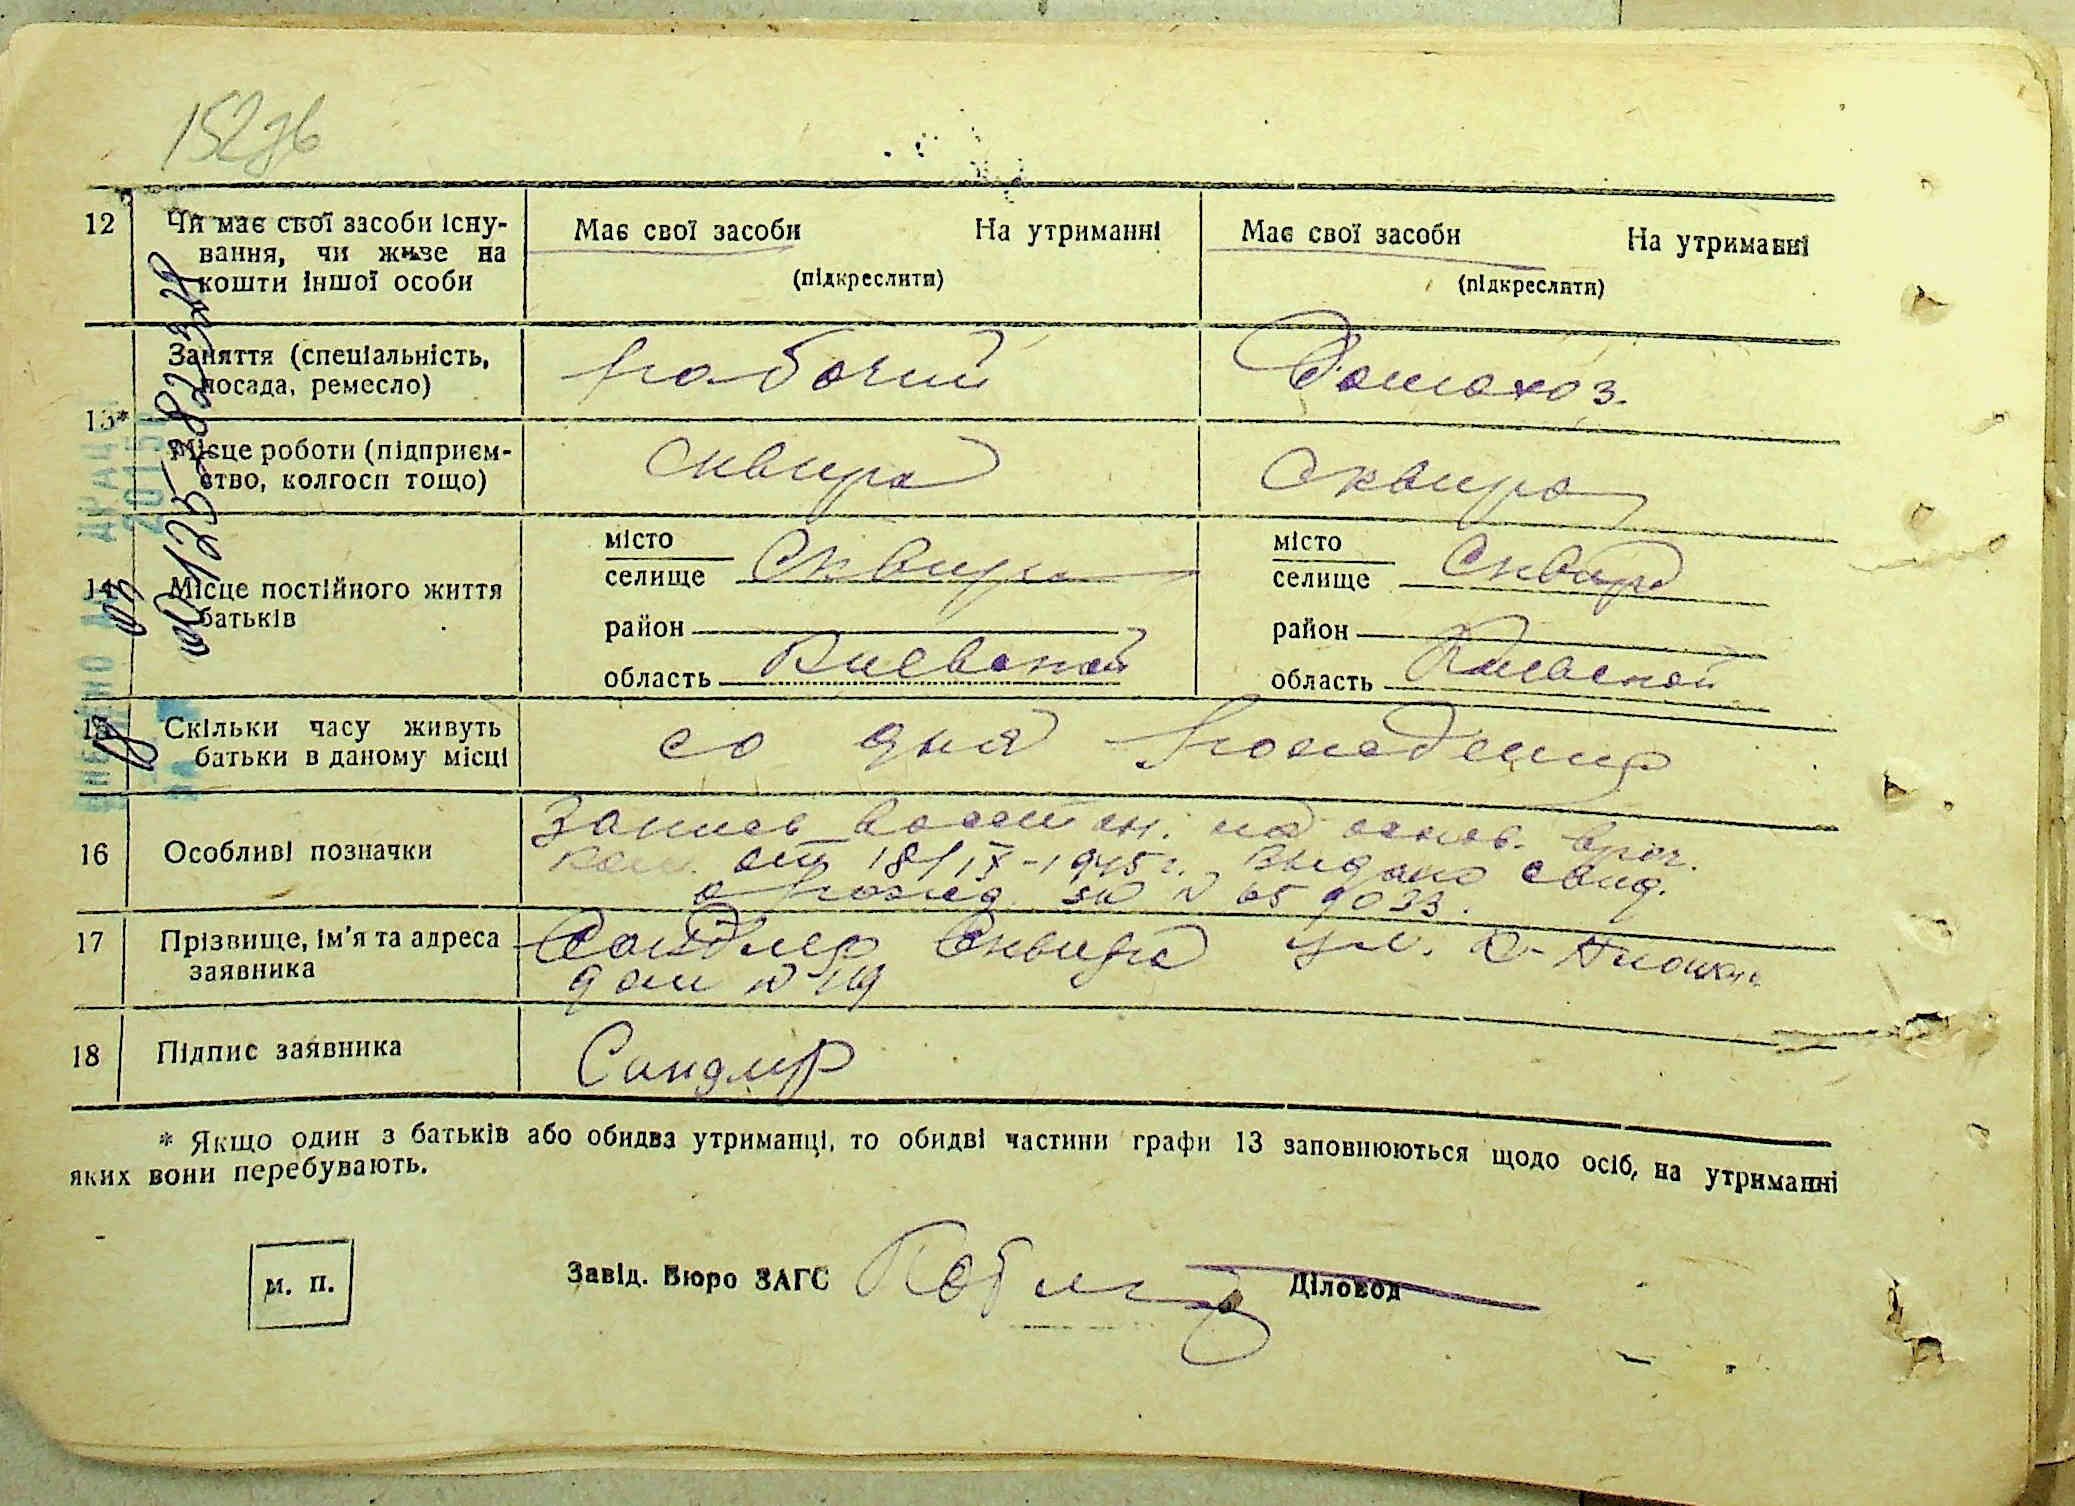 152зв
12 Чи має свої засоби існу- Має свої засоби На утриманні Має свої засоби На утриманні
вання, чи живе на
кошти іншої особи (підкреслити) (підкреслити)
Заняття (спеціальність, рабочий Домохоз.
посада, ремесло)
13*
Місце роботи (підприєм- Сквира Сквира
ство, колгосп тощо)
місто місто
селище Сквира селище Сквира
14 Місце постійного життя
батьків
район район
область Киевской область Киевской
15 Скільки часу живуть со дня рождения
батьки в даному місці
Запись восстан. на основ. врач.
16 Особливі позначки ком. от 18/IX-1945г. Выдано свид.
о рожд. № 659033.
17 Прізвище, ім'я та адреса Сандлер Сквира ул.
заявника дом №
18 Підпис заявника Сандлер
* Якщо один з батьків або обидва утриманці, то обидві частини графи 13 заповнюються щодо осіб, на утриманні
яких вони перебувають.
м. п. Завід. Бюро ЗАГС Діловод